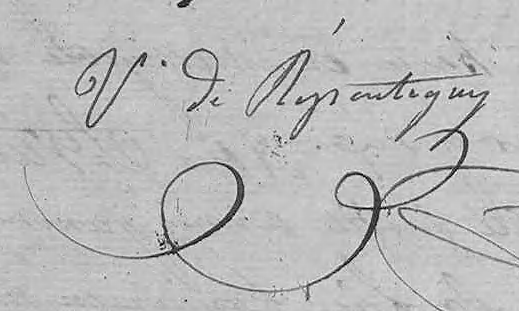 V. de Répentigny